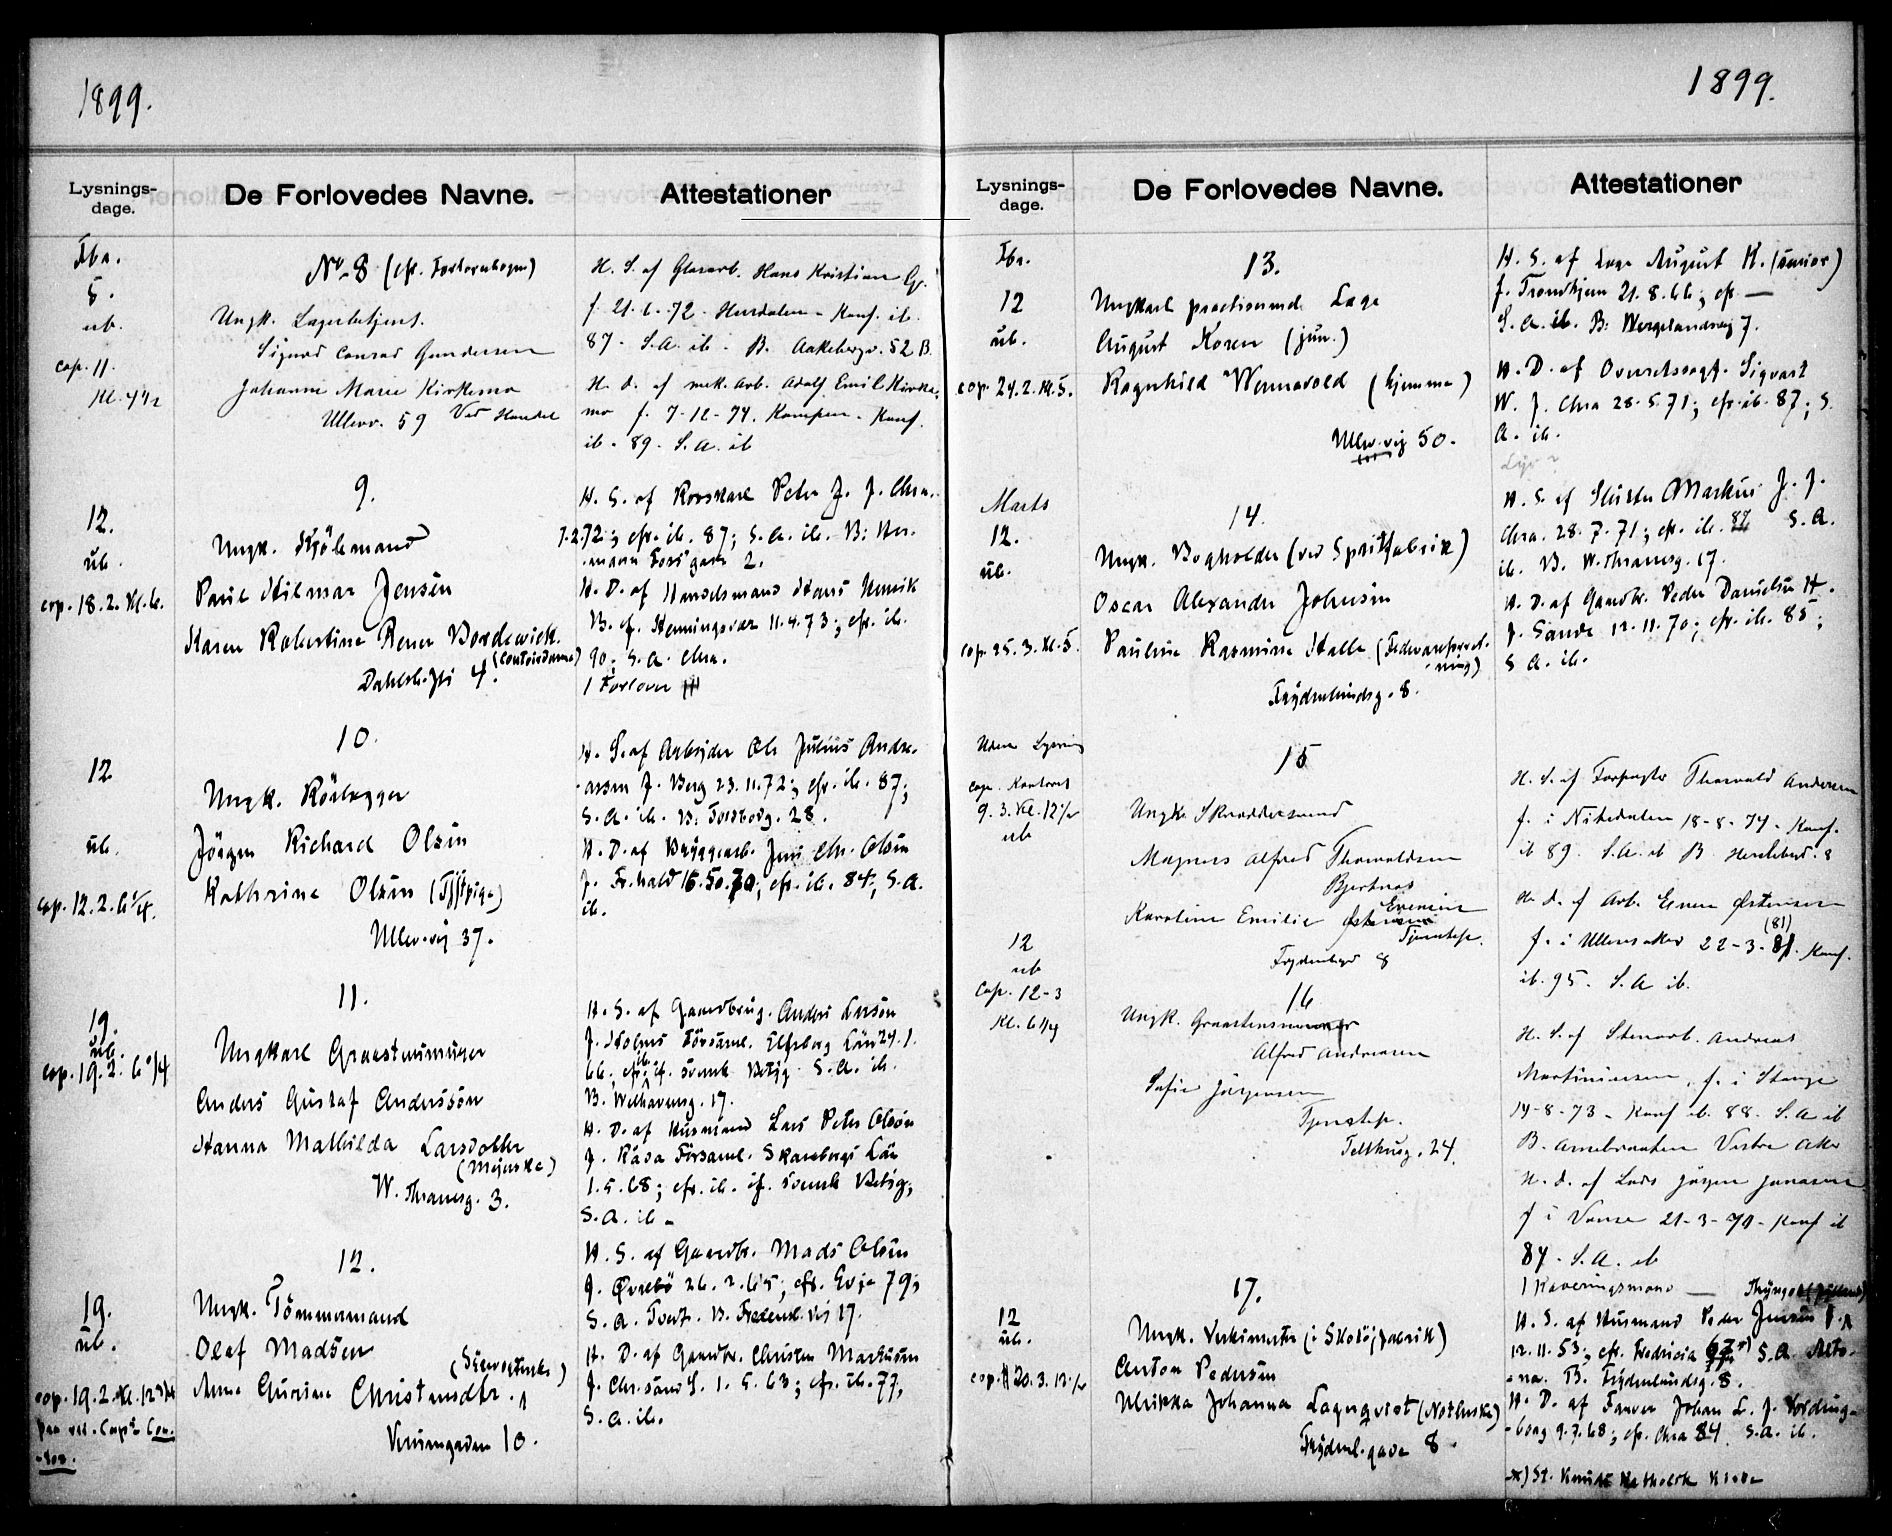 1899.
Lysnings-
dage.
De Forlovedes Navne.
Attestationer
Fbr.
5.
ub.
cop. 11.
Kl. 4 1/2
No 8 (cfr.
Ungk. Lagerbetjent.
Sigurd Conrad Gundersen
Johanne Marie Kirkemo
Ullevv. 59 Ved Handel
H. S. af Glasarb. Hans Kristian G.
f. 21.6.-72. Hurdalen - Konf. ib.
87 - S.A. ib - B. Aakebergv. 52 B.
H. d. af mek. Arb. Adolf Emil Kirke-
mo f. 7-12-74. Kampen - Konf.
ib. - 89. S.A. ib
12.
ub.
cop. 18.2. Kl. 6.
9.
Ungk. Kjöbmand
Paul Hilmar Jensen
Karen Robertine Rener Bordewick.
(Contordame)
4.
H. S. af Peter J. f. Chra.
7.2.72; cfr. ib. 87; S.A. ib. B: Her-
mann Foss' gade 2.
H. D. af Handelsmand Hans Henrik
B. f. Henningsvær 11.4.73; cfr. ib.
90; S.A. Chra.
1 Forlover
12
ub.
cop. 12.2. 6 1/4.
10.
Ungk. Rörlægger
Jörgen Richard Olsen
Kathrine Olsen (Tjstpige)
Ullev.vej 37.
H. S. af Arbejder Ole Julius Andre-
assen f. Berg 23.11.72; cfr. ib. 87;
S.A. ib. B. Tordborg. 28.
H. D. af Bryggearb. Jens Chr. Olsen
f. Fr.hald 70; cfr. ib. 84; S.A.
ib.
19.
ub.
cop. 19.2. 6 3/4
11.
Ungkarl Graastensminør
Anders Gustaf Anderssön
Hanna Mathilda Larsdotter
(Mejerske)
W. Thranesg. 3.
H. S. af Gaardbrug. Anders Larsön
f. Holms Församl. Elfsborg Län 24.1.
66; cfr. ib. if. svensk Betyg. S.A. ib.
B. Welhavensg. 17.
H. D. af Husmand Lars Peter Olsön
f. Råda Församl. Skaraborgs Län
1.5.68; cfr. ib. if. svensk Betyg;
S.A. ib.
19.
ub.
cop. 19.2. Kl. 12 3/4
paa ved. Capt.
12.
Ungk. Tömmermand
Olaf Madsen
Anne Gurine Christensdtr.
10.
H. S. af Gaardbr. Mads Olsen
f. Øvrebö 26.2.65; cfr. Evje 79;
S.A. Tvedt. B. Frederik. vej 17.
H. D. af Gaardbr. Christen Markusen
f. Chr.sand S. 1.5.63; cfr. ib. 77;
S.A. ib.
1899.
Lysnings-
dage.
De Forlovedes Navne.
Attestationer
Fbr.
12
ub.
cop. 24.2. Kl. 5.
13.
Ungkarl practiserende Læge
August Koren (jun.)
Ragnhild Wennevold (hjemme)
Ullev.vej 50.
H. S. af Læge August K. (senior)
f. Trondhjem 21.8.66; cfr —
S.A. ib. B: Wergelandsvej 7.
H. D. af Overretssagf. Sigvart
W. f. Chra 28.5.71; cfr. ib. 87; S.
A. ib.
Marts
12.
ub.
cop. 25.3. Kl. 5.
14.
Ungk. Bogholder (ved Spritfabrik)
Oscar Alexander Johnsen
Pauline Rasmine Halle (Fedevareforret-
ning)
Frydenlundsg. 8.
H. S. af Slugter Markus J. f.
Chra. 28.7.71; cfr. ib. 87 S.A.
ib. B. W. Thranesg. 17.
H. D. af Gaardbr. Peder Danielsen H.
f. Sande 12.11.70; cfr. ib. 85;
S.A. ib.
Uden Lysning
cop. Kontoret
9.3. Kl. 12 1/2
ub
15
Ungk. Skræddersvend
Magnus Alfred Thorvaldsen
Bjertnæs
Karoline Emilie Evensen
Tjeneste.
8
H. S. af Forpagter Thorvald Andersen
f. i Nitedalen 18-8-74 - Konf.
ib 89. S.A. ib B. 8
H. d. af Arb. Even Østensen
(81)
f. i Ullensaker 22-3-81. Konf.
ib. 95. S.A ib.
12
ub
Cop. 12-3
Kl. 6 1/4
16
Ungk. Graastensminør
Alfred Andreasen
Sofie Jörgensen
Tjeneste.
Telthusg. 24.
H. S. af Stenarb. Andreas
Martiniussen, f. i Stange
14-8-73 - Konf ib. 88. S.A ib
B. Arnebraaten Vestre Aker
H. d. af Lods Jörgen Jonassen
f i Vanse 21-3-70 - Konf ib
84 - S.A. ib
12
ub.
cop. 20.3. 12 1/2
17.
Ungk. Værkmester (i Skotöjfabrik)
Anton Pedersen
Ulrikka Johanna Lagerqvist (Notlerske)
Frydenl.gade 8.
1 Kaveringsmand — Thyregod (Jylland)
H. S. af Husmand Peder Jensen f.
12.11.53; cfr. Fredricia 67 *) S.A. Alto-
na. B. Frydenlundsg. 8.
H. D. af Farver Johan L. f. Vording-
borg 9.7.68; cfr. Chra 84. S.A. ib.
*) St. Knuds Katholsk Kirke